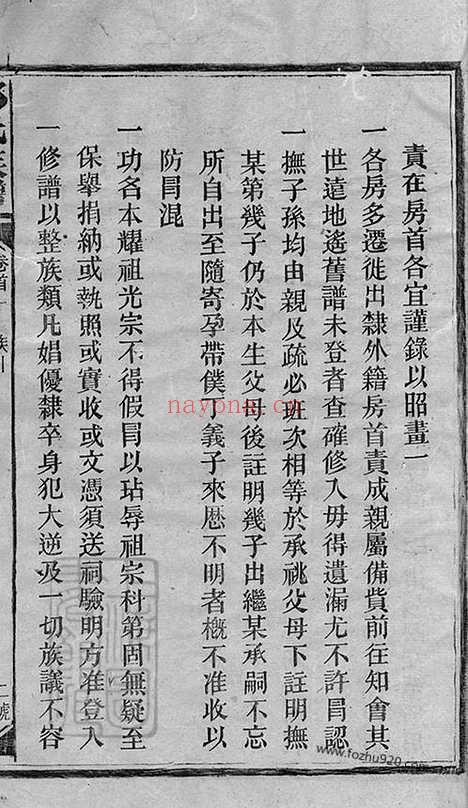 責在房首各宜謹錄以昭畫一
一各房多遷徙出隸外籍房首責成親屬備貲前往知會其
世遠地遙舊譜未登者查確修入毋得遺漏尤不許冒認
一撫子孫均由親及疏必班次相等於承祧父母下註明撫
某第幾子仍於本生父母後註明幾子出繼某承嗣不忘
所自出至隨寄孕帶僕子義子來歷不明者槪不准收以
防冒混
一功名本耀祖光宗不得假冒以玷辱祖宗科第固無疑至
保舉捐納或執照或實收或文憑須送祠驗明方准登入
一修譜以整族類凡娼優隸卒身犯大逆及一切族議不容
卷首
nayona.cn
www.fozhu920.com